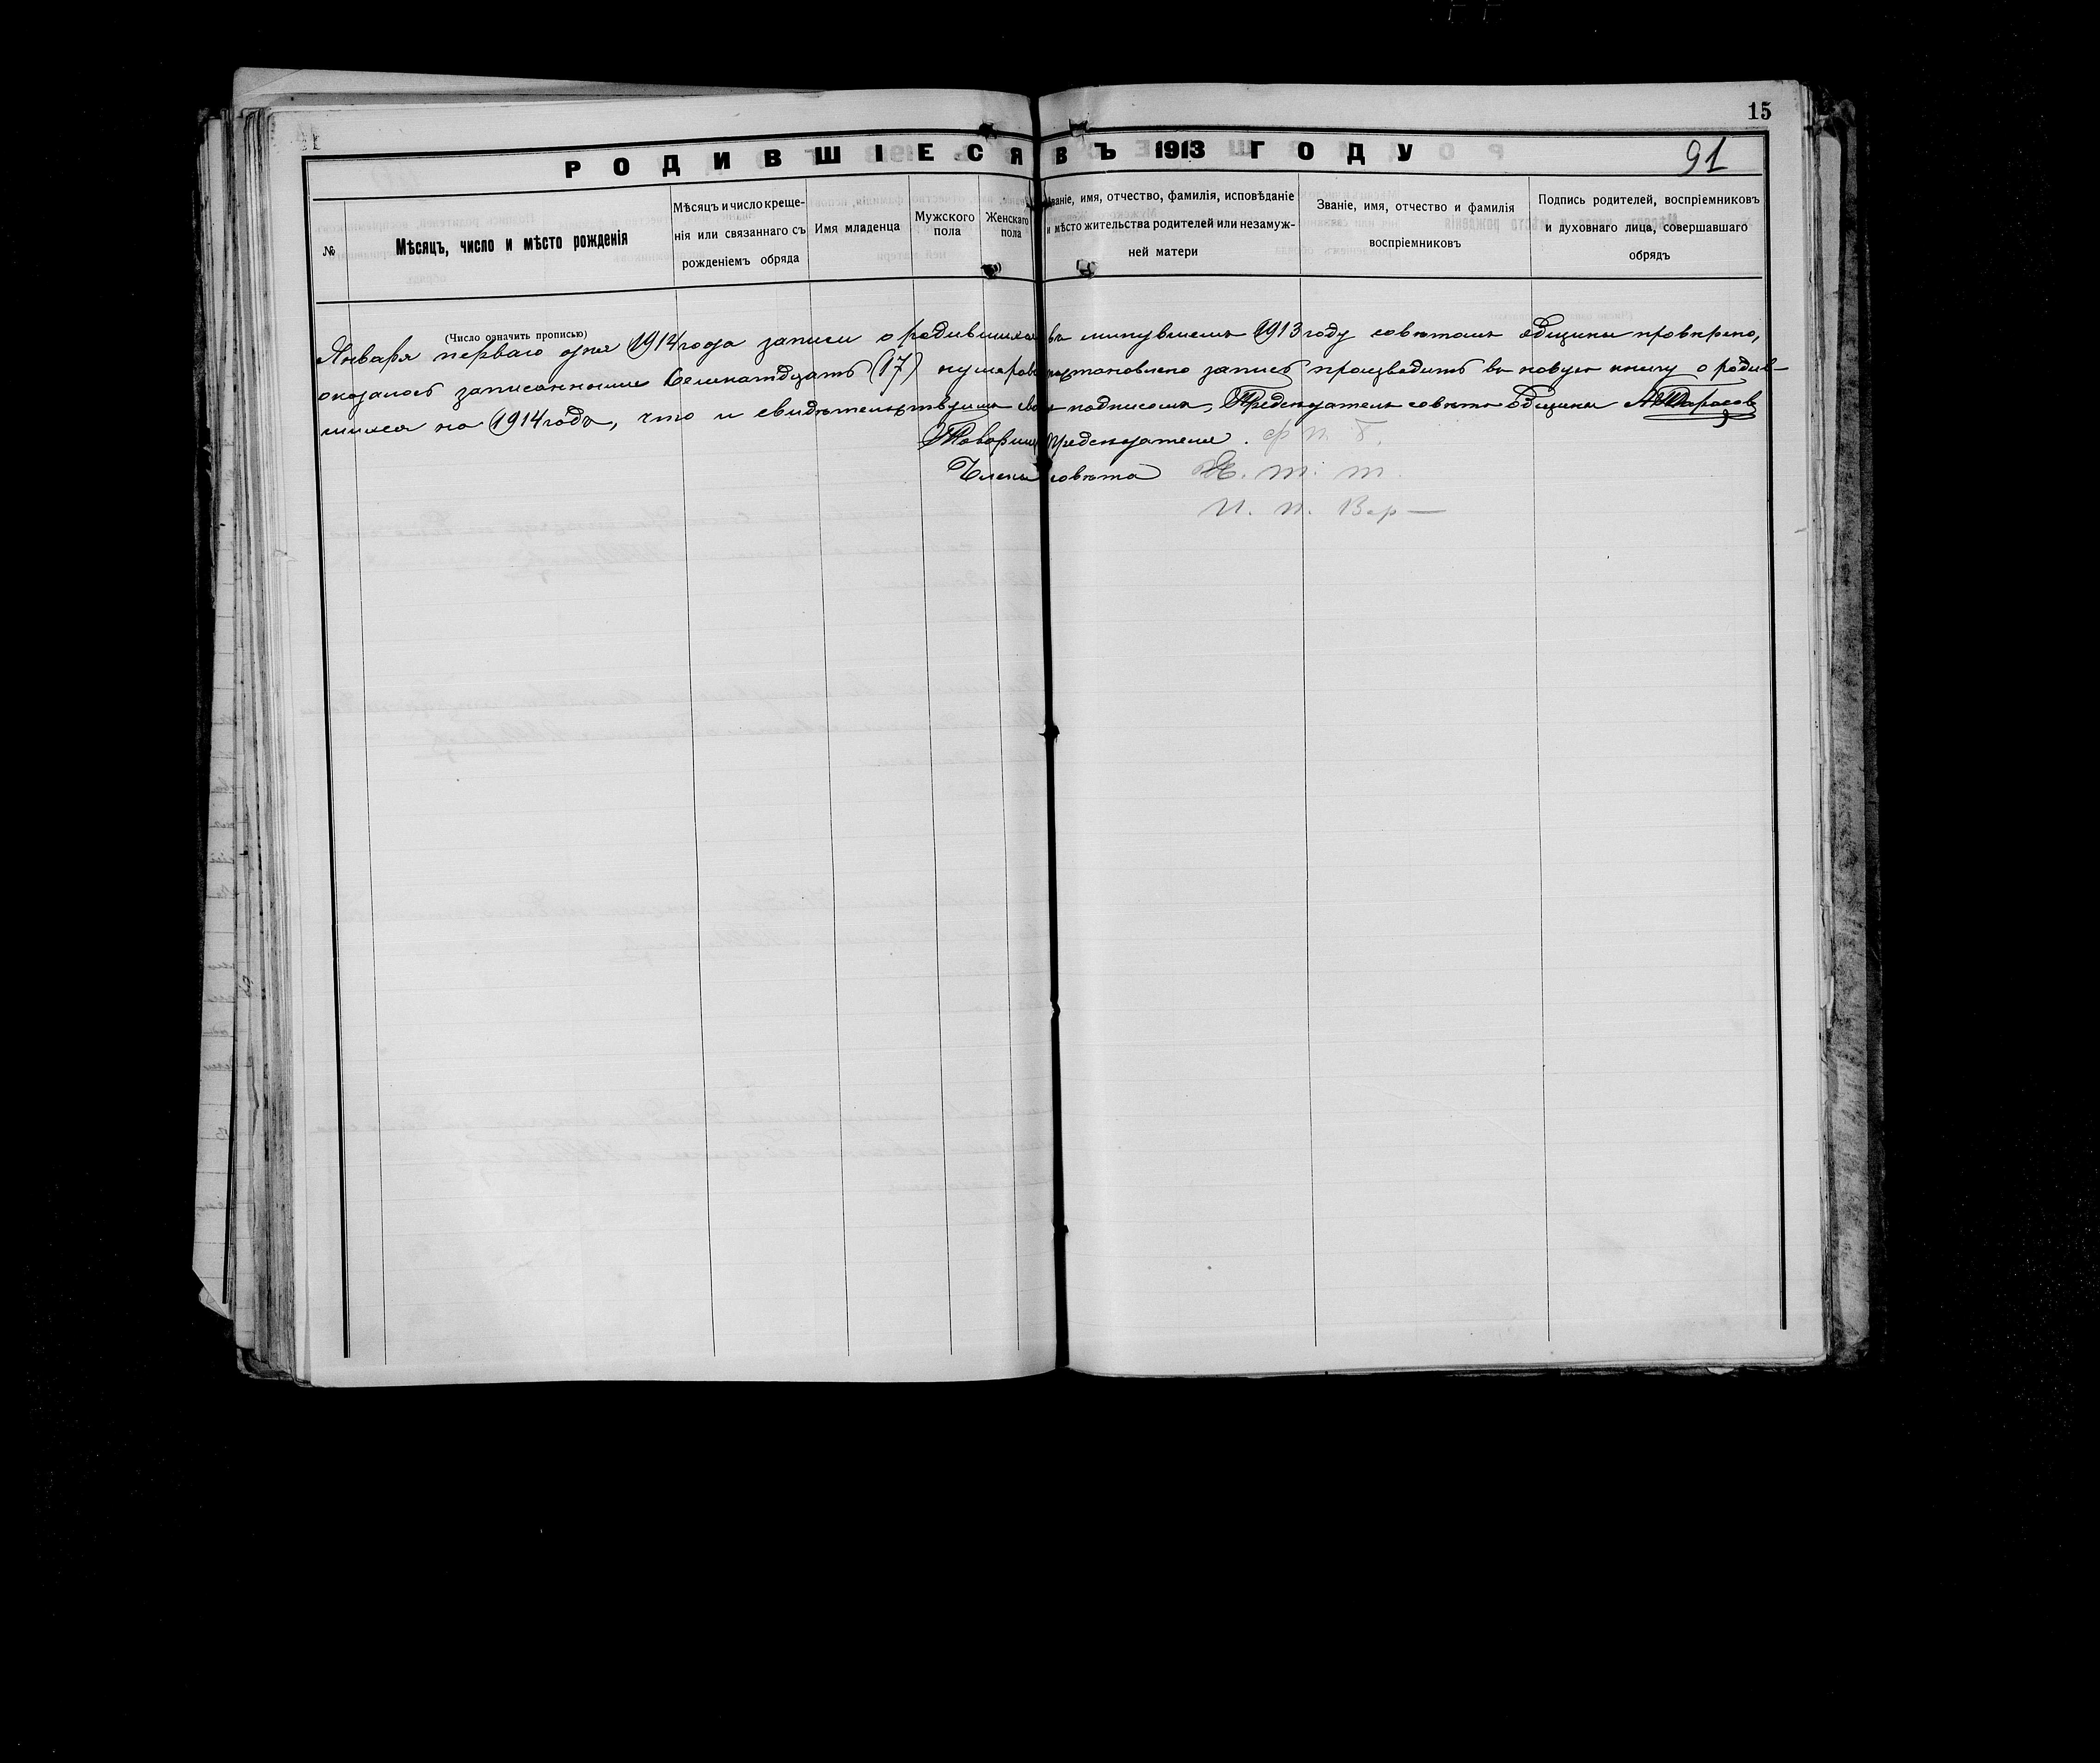 15
РОДИВШІЕСЯ ВЪ 1913 ГОДУ
91
№
Мѣсяцъ, число и мѣсто рожденія
Мѣсяцъ и число креще-
нія или связаннаго съ
рожденіемъ обряда
Имя младенца
Мужского
пола
Женскаго
пола
Званіе, имя, отчество, фамилія, исповѣданіе
и мѣсто жительства родителей или незамуж-
ней матери
Званіе, имя, отчество и фамилія
воспріемниковъ
Подпись родителей, воспріемниковъ
и духовнаго лица, совершавшаго
обрядъ
(Число означить прописью)
Января перваго дня 1914 года записи о родившихся въ минувшемъ 1913 году совѣтомъ общины провѣрено,
оказалось записанными семнатдцать (17) нумеровъ постановлено запись производить въ новую книгу о родив-
шихся на 1914 годъ, что и свидѣтельствуемъ подписомъ, Предсѣдатель совѣта общины А Тарасов
Товарищъ Предсѣдателя. Ф. П. Б.
Члены совѣта т. т.
П. п. Вер—